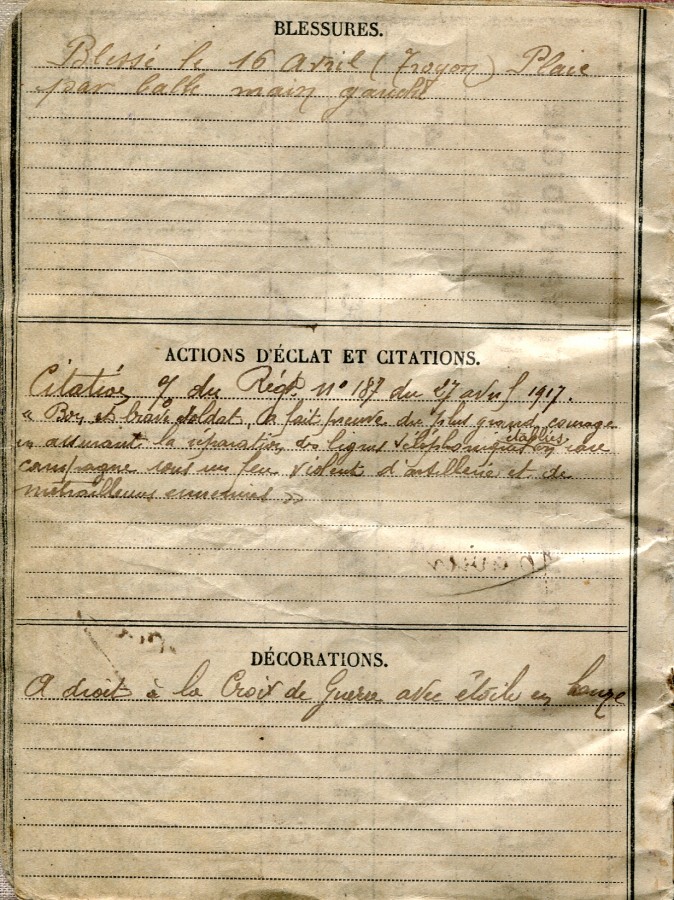 BLESSURES.
Blessé le 16 avril (Troyon) Plaie
par balle main gauche
ACTIONS D'ÉCLAT ET CITATIONS.
Citation o/ du Régt. N° 187 du 27 avril 1917.
« Bon et brave soldat, a fait preuve du plus grand courage
en assurant la réparation des lignes téléphoniques établies en rase
campagne sous un feu violent d'artillerie et de
mitrailleuses ennemies »
DÉCORATIONS.
A droit à la Croix de Guerre avec étoile en bronze